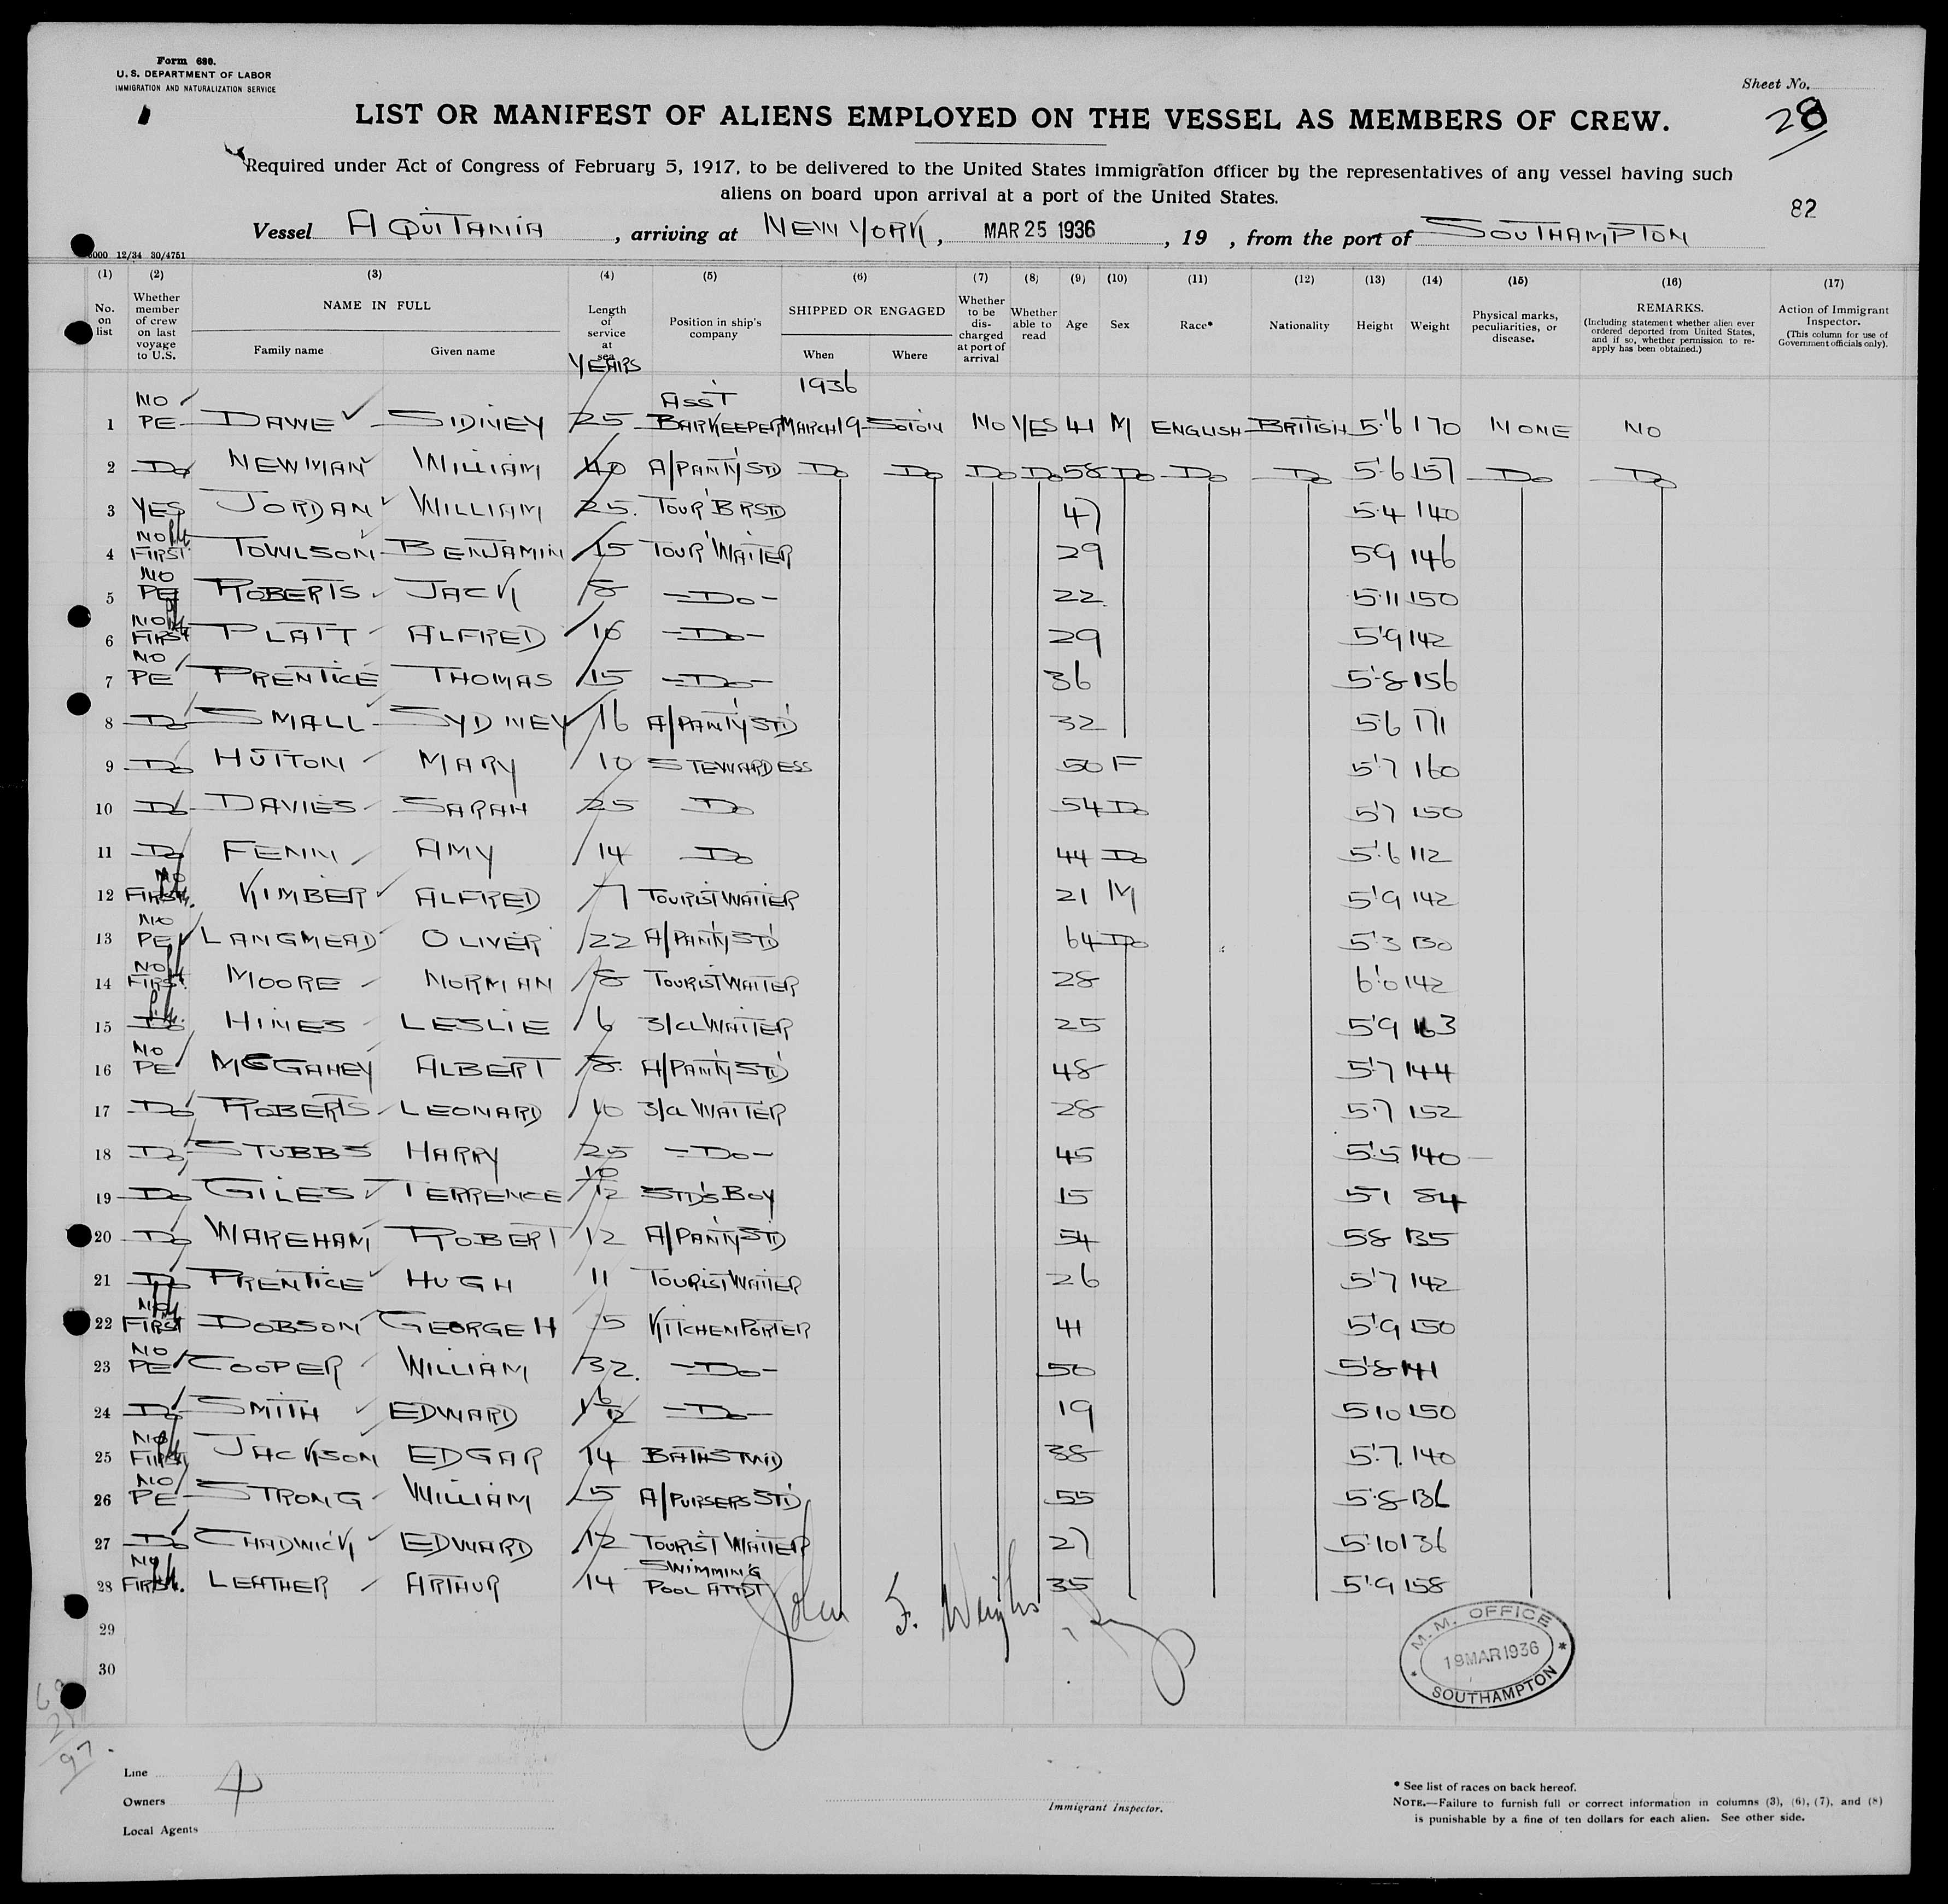 Form 680.
U. S. DEPARTMENT OF LABOR
IMMIGRATION AND NATURALIZATION SERVICE
Sheet No.
28
LIST OR MANIFEST OF ALIENS EMPLOYED ON THE VESSEL AS MEMBERS OF CREW.
Required under Act of Congress of February 5, 1917, to be delivered to the United States immigration officer by the representatives of any vessel having such
aliens on board upon arrival at a port of the United States.
82
Vessel AQUITANIA, arriving at NEW YORK, MAR 25 1936, 19 , from the port of SOUTHAMPTON
5000 12/34 30/4751
(1) (2) (3) (4) (5) (6) (7) (8) (9) (10) (11) (12) (13) (14) (15) (16) (17)
No. on list
Whether member of crew on last voyage to U.S.
NAME IN FULL
Family name Given name
Length of service at sea
YEARS
Position in ship's company
SHIPPED OR ENGAGED
When Where
Whether to be discharged at port of arrival
Whether able to read
Age Sex Race* Nationality Height Weight
Physical marks, peculiarities, or disease.
REMARKS.
(Including statement whether alien ever ordered deported from United States, and if so, whether permission to reapply has been obtained.)
Action of Immigrant Inspector.
(This column for use of Government officials only).
1936
1 NO PE DAWE SIDNEY 25 ASST BARKEEPER MARCH 19 SOTON NO YES 41 M ENGLISH BRITISH 5'6 170 NONE NO
2 Do NEWMAN WILLIAM 40 A/PANTY STD Do Do Do Do 58 Do Do Do 5'6 157 Do Do
3 YES JORDAN WILLIAM 25. TOUR B RSTD 47 5.4 140
4 NO FIRST TOWLSON BENJAMIN 15 TOUR WAITER 29 59 146
5 NO PE ROBERTS JACK 8 -Do- 22 5.11 150
6 NO FIRST PLATT ALFRED 16 -Do- 29 5'9 142
7 NO PE PRENTICE THOMAS 15 -Do- 36 5'8 156
8 Do SMALL SYDNEY 16 A/PANTY STD 32 5'6 171
9 Do HUTTON MARY 10 STEWARDESS 50 F 5'7 160
10 Do DAVIES SARAH 25 Do 54 Do 5'7 150
11 Do FENN AMY 14 Do 44 Do 5'6 112
12 NO FIRST KIMBER ALFRED 7 TOURIST WAITER 21 M 5'9 142
13 NO PE LANGMEAD OLIVER 22 A/PANTY STD 64 Do 5'3 130
14 NO FIRST MOORE NORMAN 8 TOURIST WAITER 28 6'0 142
15 Do HINES LESLIE 6 3/CL WAITER 25 5'9 163
16 NO PE McGAHEY ALBERT 8. A/PANTY STD 48 5'7 144
17 Do ROBERTS LEONARD 10 3/CL WAITER 28 5'7 152
18 Do STUBBS HARRY 25 -Do- 45 5'5 140
19 Do GILES TERRENCE 10/12 STD'S BOY 15 5'1 84
20 Do WAREHAM ROBERT 12 A/PANTY STD 54 58 135
21 Do PRENTICE HUGH 11 TOURIST WAITER 26 5'7 142
22 NO FIRST DOBSON GEORGE H 5 KITCHEN PORTER 41 5'9 150
23 NO PE COOPER WILLIAM 32. -Do- 50 5'8 141
24 Do SMITH EDWARD 1 6/12 -Do- 19 510 150
25 NO FIRST JACKSON EDGAR 14 BATHSTWD 38 5'7. 140
26 NO PE STRONG WILLIAM 5 A/PURSERS STD 55 5'8 136
27 Do CHADWICK EDWARD 12 TOURIST WAITER 27 5'10 136
28 NO FIRST LEATHER ARTHUR 14 SWIMMING POOL ATTDT 35 5'9 158
29
30
John F.
M. M. OFFICE
19 MAR 1936
SOUTHAMPTON
97
Line
4
Owners
Local Agents
Immigrant Inspector.
* See list of races on back hereof.
NOTE.—Failure to furnish full or correct information in columns (3), (6), (7), and (8)
is punishable by a fine of ten dollars for each alien. See other side.